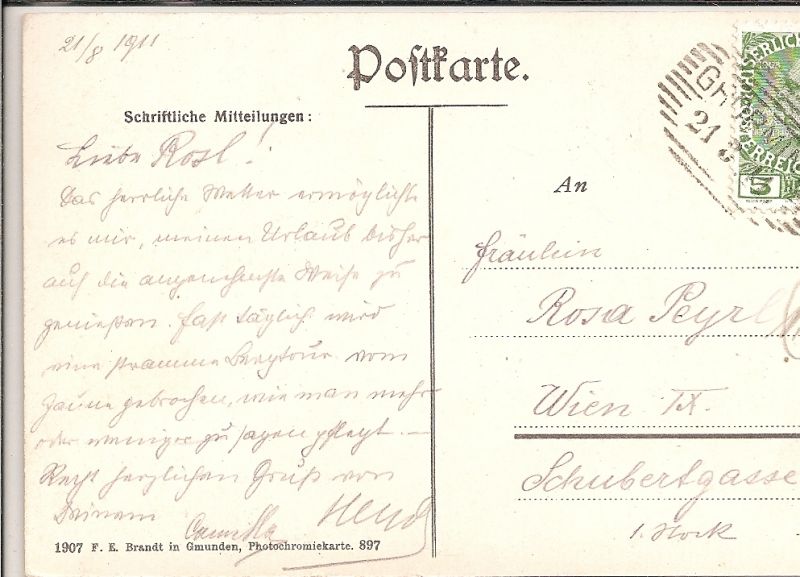 21/8 1911
Postkarte.
Schriftliche Mitteilungen:
Liebe Rosl!
Das herrliche Wetter ermöglichte
es mir, meinen Urlaub bisher
auf die angenehmste Weise zu
genießen. Fast täglich wird
eine stramme Bergtour vom
Zaune gebrochen, wie man mehr
oder weniger zu sagen pflegt.—
Recht herzlichen Gruß von
Deinem
Camilla
1907 F. E. Brandt in Gmunden, Photochromiekarte. 897
An
Fräulein
Rosa Peyrl
Wien IX.
Schubertgasse
1. Stock
21 8
5